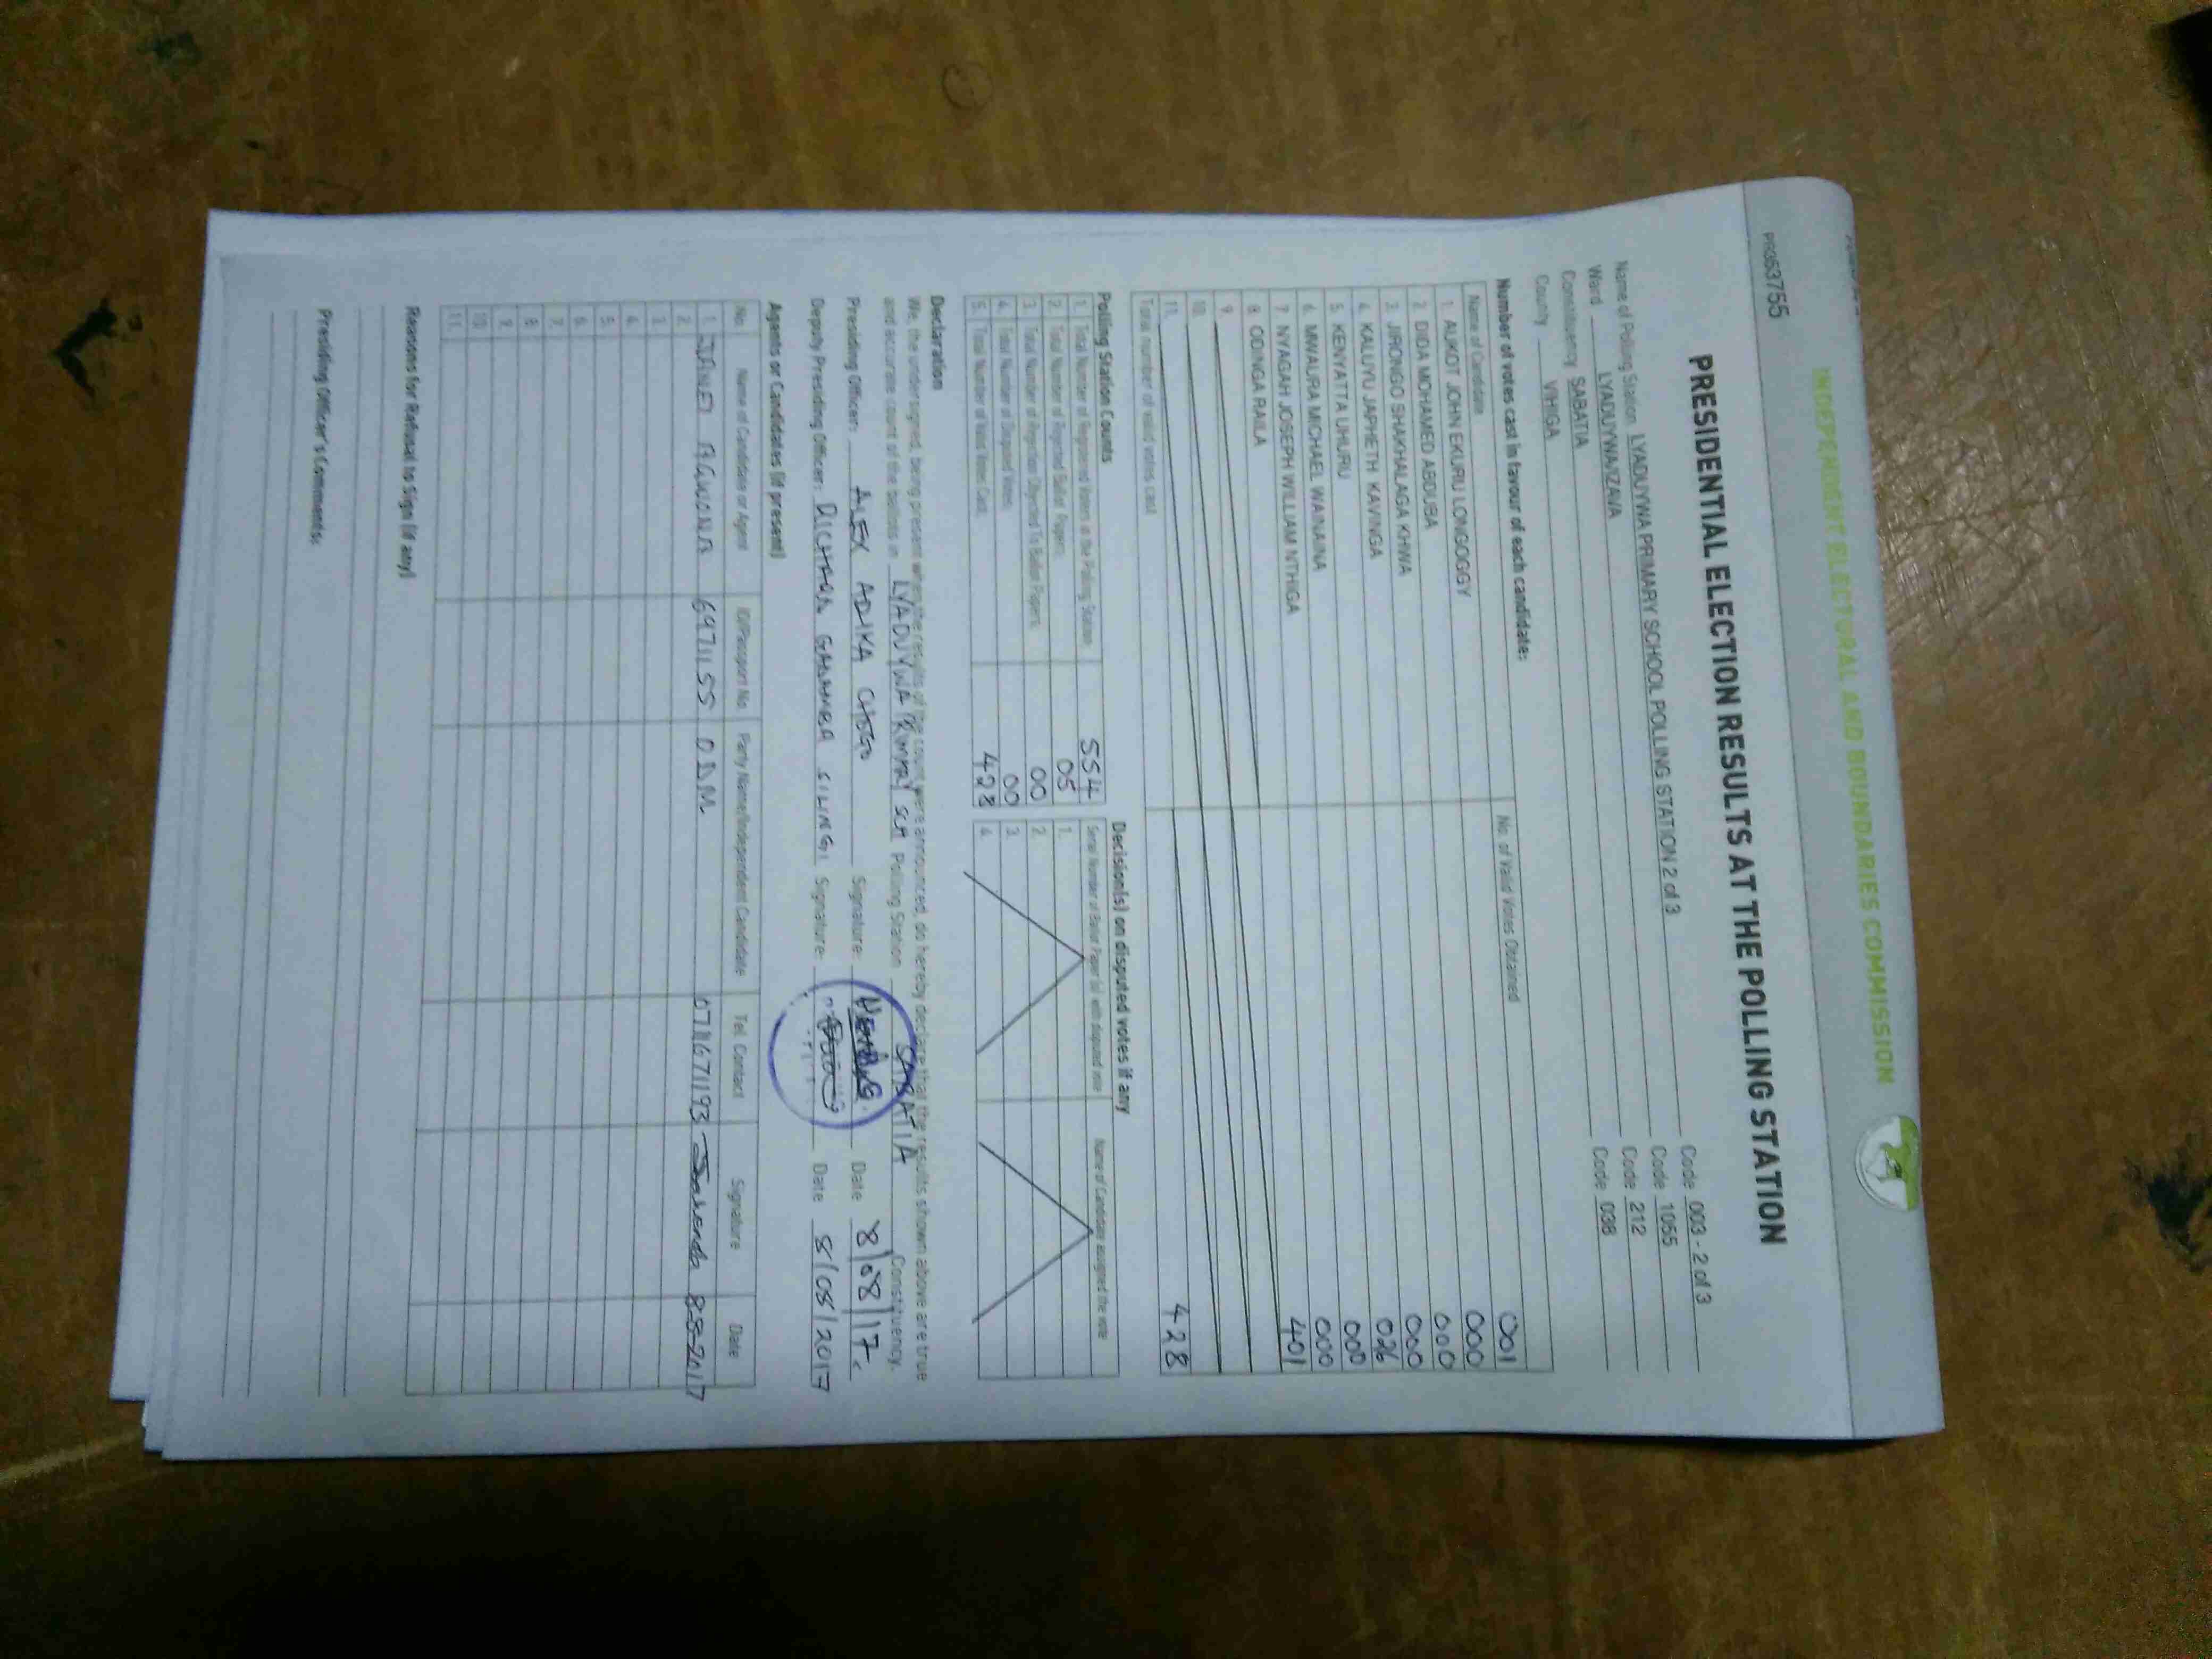 INDEPENDENT ELECTORAL AND BOUNDARIES COMMISSION
PR363755
PRESIDENTIAL ELECTION RESULTS AT THE POLLING STATION
Name of Polling Station LYADUYWA PRIMARY SCHOOL POLLING STATION 2 of 3 Code 003 - 2 of 3
Ward LYADUYWA/IZAVA Code 1055
Constituency SABATIA Code 212
County VIHIGA Code 038
Number of votes cast in favour of each candidate:
Name of Candidate No. of Valid Votes Obtained
1. AUKOT JOHN EKURU LONGOGGY 001
2. DIDA MOHAMED ABDUBA 000
3. JIRONGO SHAKHALAGA KHWA 000
4. KALUYU JAPHETH KAVINGA 000
5. KENYATTA UHURU 026
6. MWAURA MICHAEL WAINAINA 000
7. NYAGAH JOSEPH WILLIAM NTHIGA 000
8. ODINGA RAILA 401
9.
10.
11.
Total number of valid votes cast 428
Polling Station Counts
1. Total Number of Registered Voters in the Polling Station 554
2. Total Number of Rejected Ballot Papers 05
3. Total Number of Rejection Objected To Ballot Papers 00
4. Total Number of Disputed Votes 00
5. Total Number of Valid Votes Cast 428
Decision(s) on disputed votes if any
Serial Number of Ballot Paper(s) with disputed vote Name of Candidate assigned the vote
1.
2.
3.
4.
Declaration
We, the undersigned, being present when the results of the count were announced, do hereby declare that the results shown above are true
and accurate count of the ballots in LYADUYWA PRIMARY SCH Polling Station SABATIA Constituency.
Presiding Officer: ALEX ADIKA Signature: Date 8/08/17
Deputy Presiding Officer: Signature: Date 8/08/2017
Agents or Candidates (if present)
No. Name of Candidate or Agent ID/Passport No. Party Name/Independent Candidate Tel. Contact Signature Date
1. JANET 6971155 ODM 0716711193 8-8-2017
2.
3.
4.
5.
6.
7.
8.
9.
10.
11.
Reasons for Refusal to Sign (if any)
Presiding Officer's Comments: